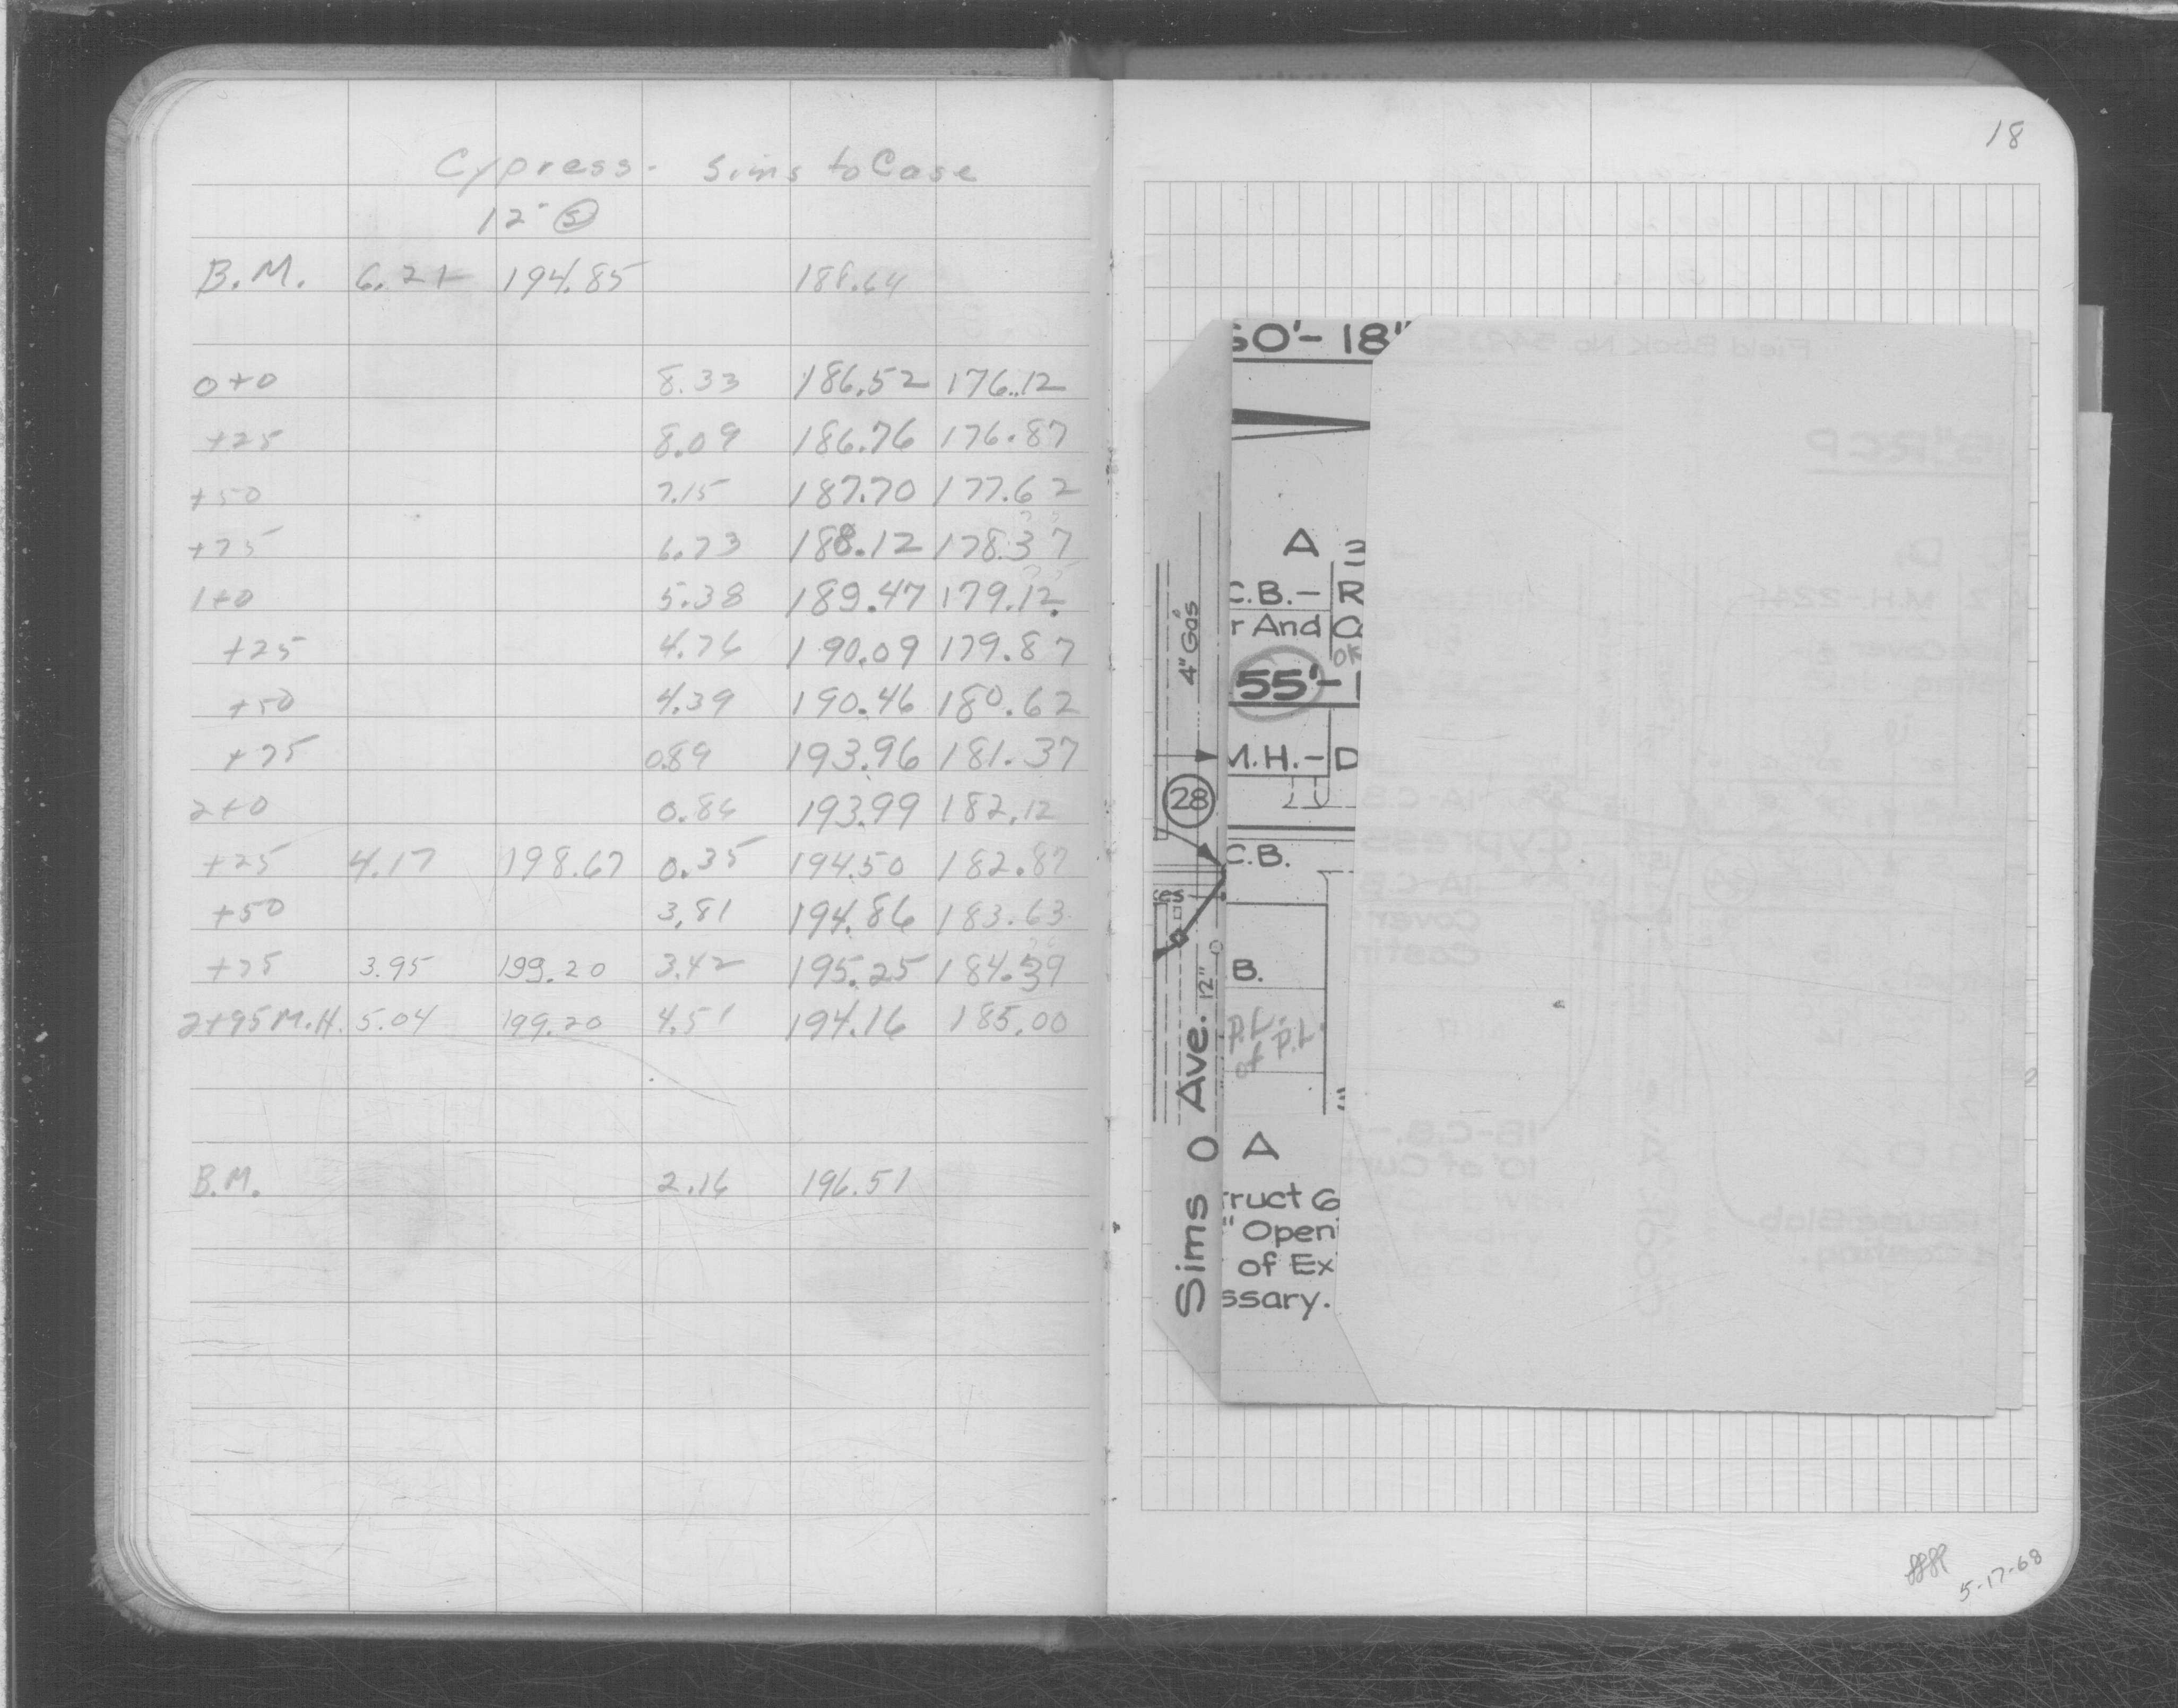 Cypress - Sims to Case
12" Ⓢ
B.M. 6.21 194.85 188.64
0+0 8.33 186.52 176.12
+25 8.09 186.76 176.87
+50 7.15 187.70 177.62
+75 6.73 188.12 178.37
1+0 5.38 189.47 179.12
+25 4.76 190.09 179.87
+50 4.39 190.46 180.62
+75 0.89 193.96 181.37
2+0 0.86 193.99 182.12
+25 4.17 198.67 0.35 194.50 182.87
+50 3.81 194.86 183.63
+75 3.95 199.20 3.42 195.25 184.39
2+95 M.H. 5.04 199.20 4.51 194.16 185.00
B.M. 2.16 196.51
18
50'- 18"
A
C.B.- R
r And
4" Gas
55'- 1
M.H.- D
28
C.B.
B.
P.L.
of P.L.
12"
Sims Ave.
A
truct 6
" Openi
of Ex
ssary.
5-17-68